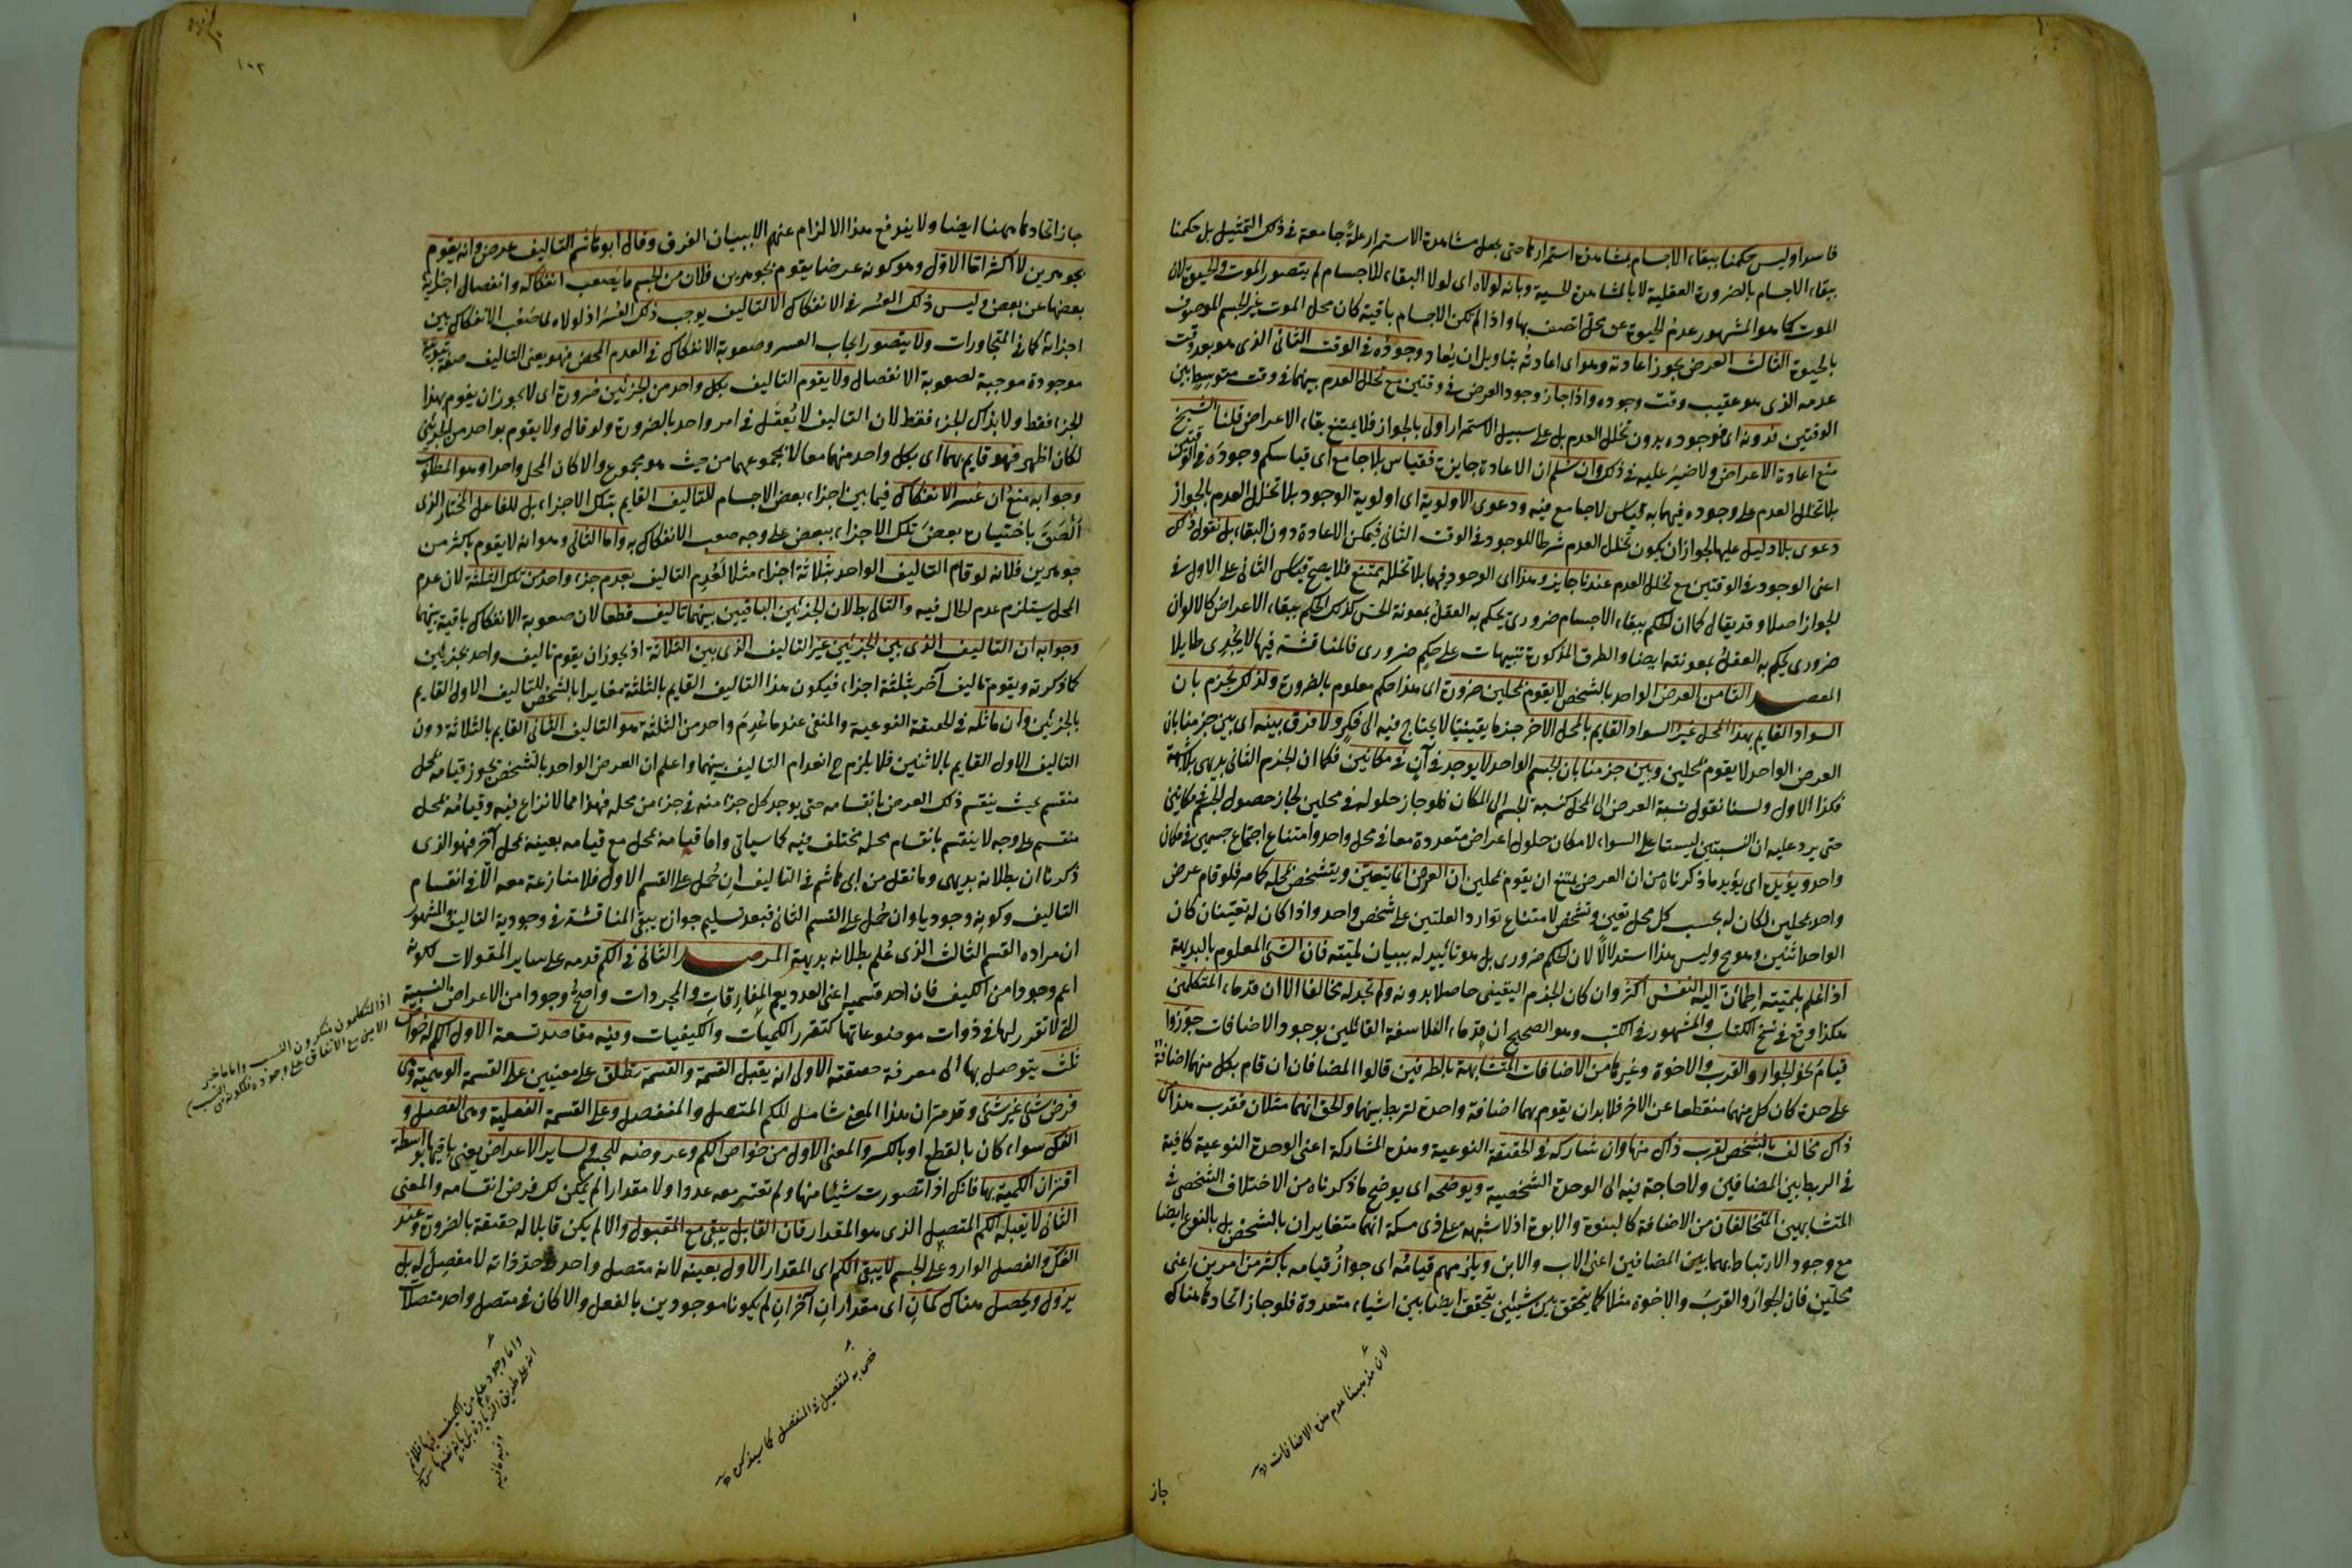 فاسدا وليس حكمنا ببقاء الاجسام بمشاهدة استمرارها حتى يجعل مشاهدة الاستمرار علةً جامعة فى ذلك التمثيل بل حكمنا
ببقاء الاجسام بالضرورة العقلية لا بالمشاهدة الحسية وبانه لولاه اى لولا البقاء للاجسام لم يتصور الموت والحيوة لان
الموت كما هو المشهور عدم الحيوة عن محل اتصف بها واذا لم يكن الاجسام باقية كان محل الموت غير الجسم الموصوف
بالحيوة الثالث العرض يجوز اعادته وهو اى اعادته بتاويل ان يعاد وجوده فى الوقت الثانى الذى هو بعد وقت
عدمه الذى هو عقيب وقت وجوده واذا جاز وجود العرض فى وقتين مع تخلل العدم بينهما فى وقت متوسط بين
الوقتين فدونه اى فوجوده بدون تخلل العدم بل على سبيل الاستمرار اولى بالجواز فلا يمتنع بقاء الاعراض قلنا الشيخ
منع اعادة الاعراض ولا ضير عليه فى ذلك وان سلم ان الاعادة جايزة فقياس بلا جامع اى قياسكم وجوده فى الوقتين
بلا تخلل العدم على وجوده فيهما به قياس لا جامع فيه ودعوى الاولوية اى اولوية الوجود بلا تخلل العدم بالجواز
دعوى بلا دليل عليها لجواز ان يكون تخلل العدم شرطا للوجود فى الوقت الثانى فيمكن الاعادة دون البقاء بل نقول ذلك
اعنى الوجود فى الوقتين مع تخلل العدم عندنا جايز وهذا اى الوجود فيهما بلا تخلله ممتنع فلا يصح قياس الثانى على الاول فى
الجواز اصلا وقد يقال كما ان الحكم ببقاء الاجسام ضرورى يحكم به العقل بمعونة الحس كذلك الحكم ببقاء الاعراض كالالوان
ضرورى يحكم به العقل بمعونته ايضا والطرق المذكورة تنبيهات على حكم ضرورى فالمناقشة فيها لا يجدى طايلا
المقصد الثامن العرض الواحد بالشخص لا يقوم بمحلين ضرورة اى هذا حكم معلوم بالضرورة ولذلك نجزم بان
السواد القايم بهذا المحل غير السواد القايم بالمحل الاخر جزما يقينيا لا يحتاج فيه الى فكر ولا فرق بينه اى بين جزمنا بان
العرض الواحد لا يقوم بمحلين وبين جزمنا بان الجسم الواحد لا يوجد فى آن فى مكانين فكما ان الجزم الثانى بديهى بلا شبهة
فكذا الاول ولسنا نقول نسبة العرض الى المحل كنسبة الجسم الى المكان فلو جاز حلوله فى محلين لجاز حصول الجسم فى مكانين
حتى يرد عليه ان النسبتين ليستا على السواء لامكان حلول اعراض متعددة معا فى محل واحد وامتناع اجتماع جسمين فى مكان
واحد ويؤيده اى يؤيد ما ذكرناه من ان العرض يمتنع ان يقوم بمحلين ان العرض انما يتعين ويتشخص بمحله كما مر فلو قام عرض
واحد بمحلين لكان له بحسب كل محل تعين وتشخص لامتناع توارد العلتين على شخص واحد واذا كان له تعينان كان
الواحد اثنين وهو مح وليس هذا استدلالاً لان الحكم ضرورى بل هو تاييد له ببيان لميته فان الشئ المعلوم بالبديهة
اذا علم بلميته اطمأن اليه النفس اكثر وان كان الجزم اليقينى حاصلا بدونه ولم نجد له مخالفا الا ان قدماء المتكلمين
هكذا وقع فى نسخ الكتاب والمشهور فى الكتب وهو الصحيح ان قدماء الفلاسفة القائلين بوجود الاضافات جوزوا
قيام نحو الجوار والقرب والاخوة وغيرها من الاضافات المتشابهة بالطرفين قالوا المضافان ان قام بكل منهما اضافة
على حدة كان كل منهما منقطعا عن الاخر فلا بد ان يقوم بهما اضافة واحدة لتربط بينهما والحق انهما مثلان فقرب هذا من
ذاك مخالف بالشخص لقرب ذاك من هذا وان شاركه فى الحقيقة النوعية وهذه المشاركة اعنى الوحدة النوعية كافية
فى الربط بين المضافين ولا حاجة فيه الى الوحدة الشخصية ويوضحه اى يوضح ما ذكرناه من الاختلاف الشخصى فى
المتشابهين المتخالفان من الاضافة كالبنوة والابوة اذ لا شبهة على ذى مسكة انهما متغايران بالشخص بل بالنوع ايضا
مع وجود الارتباط بهما بين المضافين اعنى الاب والابن ويلزمهم قيامه اى جواز قيامه باكثر من امرين اعنى
محلين فان الجوار والقرب والاخوة مثلا كما يتحقق بين شيئين يتحقق ايضا بين اشياء متعددة فلو جاز اتحادها هناك
لان مذهبنا عدم هذه الاضافات
جاز
١٠٢
جاز اتحادها ههنا ايضا ولا يندفع هذا الالزام عنهم الا ببيان الفرق وقال ابو هاشم التاليف عرض وانه يقوم
بجوهرين لا اكثر اما الاول وهو كونه عرضا يقوم بجوهرين فلان من الجسم ما يصعب انفكاكه وانفصال اجزائه
بعضها عن بعض وليس ذلك العسر فى الانفكاك الا لتاليف يوجب ذلك العسر اذ لولاه لما صعب الانفكاك بين
اجزائه كما فى المتجاورات ولا يتصور ايجاب العسر وصعوبة الانفكاك فى العدم المحض فهو يعنى التاليف صفة ثبوتية
موجودة موجبة لصعوبة الانفصال ولا يقوم التاليف بكل واحد من الجزئين ضرورة اى لا يجوز ان يقوم بهذا
الجزء فقط ولا بذاك الجزء فقط لان التاليف لا يعقل فى امر واحد بالضرورة ولو قال ولا يقوم بواحد من الجزئين
لكان اظهر فهو قايم بهما اى بكل واحد منهما معا لا بمجموعهما من حيث هو مجموع والا كان المحل واحدا وهو المطلوب
وجوابه منع ان عسر الانفكاك فيما بين اجزاء بعض الاجسام للتاليف القايم بتلك الاجزاء بل للفاعل المختار الذى
ألصق باختياره بعض تلك الاجزاء ببعض على وجه صعب الانفكاك به واما الثانى وهو انه لا يقوم باكثر من
جوهرين فلانه لو قام التاليف الواحد بثلاثة اجزاء مثلا لعدم التاليف بعدم جزء واحد من تلك الثلثة لان عدم
المحل يستلزم عدم الحال فيه والتالى بطلان الجزئين الباقيين بينهما تاليف قطعا لان صعوبة الانفكاك باقية بينهما
وجوابه ان التاليف الذى بين الجزئين غير التاليف الذى بين الثلاثة اذ يجوز ان يقوم تاليف واحد بجزئين
كما ذكرته ويقوم تاليف آخر بثلثة اجزاء فيكون هذا التاليف القايم بالثلثة مغايرا بالشخص للتاليف الاول القايم
بالجزئين وان ماثله فى الحقيقة النوعية والمنفى عند ما عدم واحد من الثلثة هو التاليف الثانى القايم بالثلاثة دون
التاليف الاول القايم بالاثنين فلا يلزم ح انعدام التاليف بينهما واعلم ان العرض الواحد بالشخص يجوز قيامه بمحل
منقسم بحيث ينقسم ذلك العرض بانقسامه حتى يوجد كل جزء منه فى جزء من محله فهذا مما لا نزاع فيه وقيامه بمحل
منقسم على وجه لا ينقسم بانقسام محله مختلف فيه كما سياتى واما قيامه بمحل مع قيامه بعينه بمحل آخر فهو الذى
ذكرنا ان بطلانه بديهى وما نقل من ابى هاشم فى التاليف ان حمل على القسم الاول فلا منازعة معه الا فى انقسام
التاليف وكونه وجوديا وان حمل على القسم الثانى فبعد تسليم جوازه يبقى المناقشة فى وجودية التاليف والمشهور
ان مراده القسم الثالث الذى علم بطلانه بديهة المرصد الثانى فى الكم قدمه على ساير المقولات لكونه
اعم وجودا من الكيف فان احد قسميه اعنى العدد يعم المقارنات والمجردات واصح وجودا من الاعراض النسبية
التى لا تقرر لها فى ذوات موضوعاتها كتقرر الكميات والكيفيات وفيه مقاصد تسعة الاول الكم له خواص
ثلث يتوصل بها الى معرفة حقيقته الاولى انه يقبل القسمة والقسمة تطلق على معنيين على القسمة الوهمية وهى
فرض شئ غير شئ وقد مر ان هذا المعنى شامل للكم المتصل والمنفصل وعلى القسمة الفعلية وهى الفصل و
الفك سواء كان بالقطع او بالكسر والمعنى الاول من خواص الكم وعروضه للجسم ولساير الاعراض يعنى باقيها بواسطة
اقتران الكمية بها فانك اذا تصورت شيئا منها ولم تعتبر معه عددا ولا مقدارا لم يمكن لك فرض انقسامه والمعنى
الثانى لا يقبله الكم المتصل الذى هو المقدار فان القابل يبقى مع المقبول والا لم يكن قابلا له حقيقة بالضرورة وعند
الفك والفصل الوارد على الجسم لا يبقى الكم اى المقدار الاول بعينه لانه متصل واحد فى حد ذاته لا مفصل له بل
يزول ويحصل هناك كمان اى مقداران آخران لم يكونا موجودين بالفعل والا كان فى متصل واحد متصلان
اذ المتكلمون منكرون النسب واما
خص به لتفصيل فى المنفصل كما سيذكره